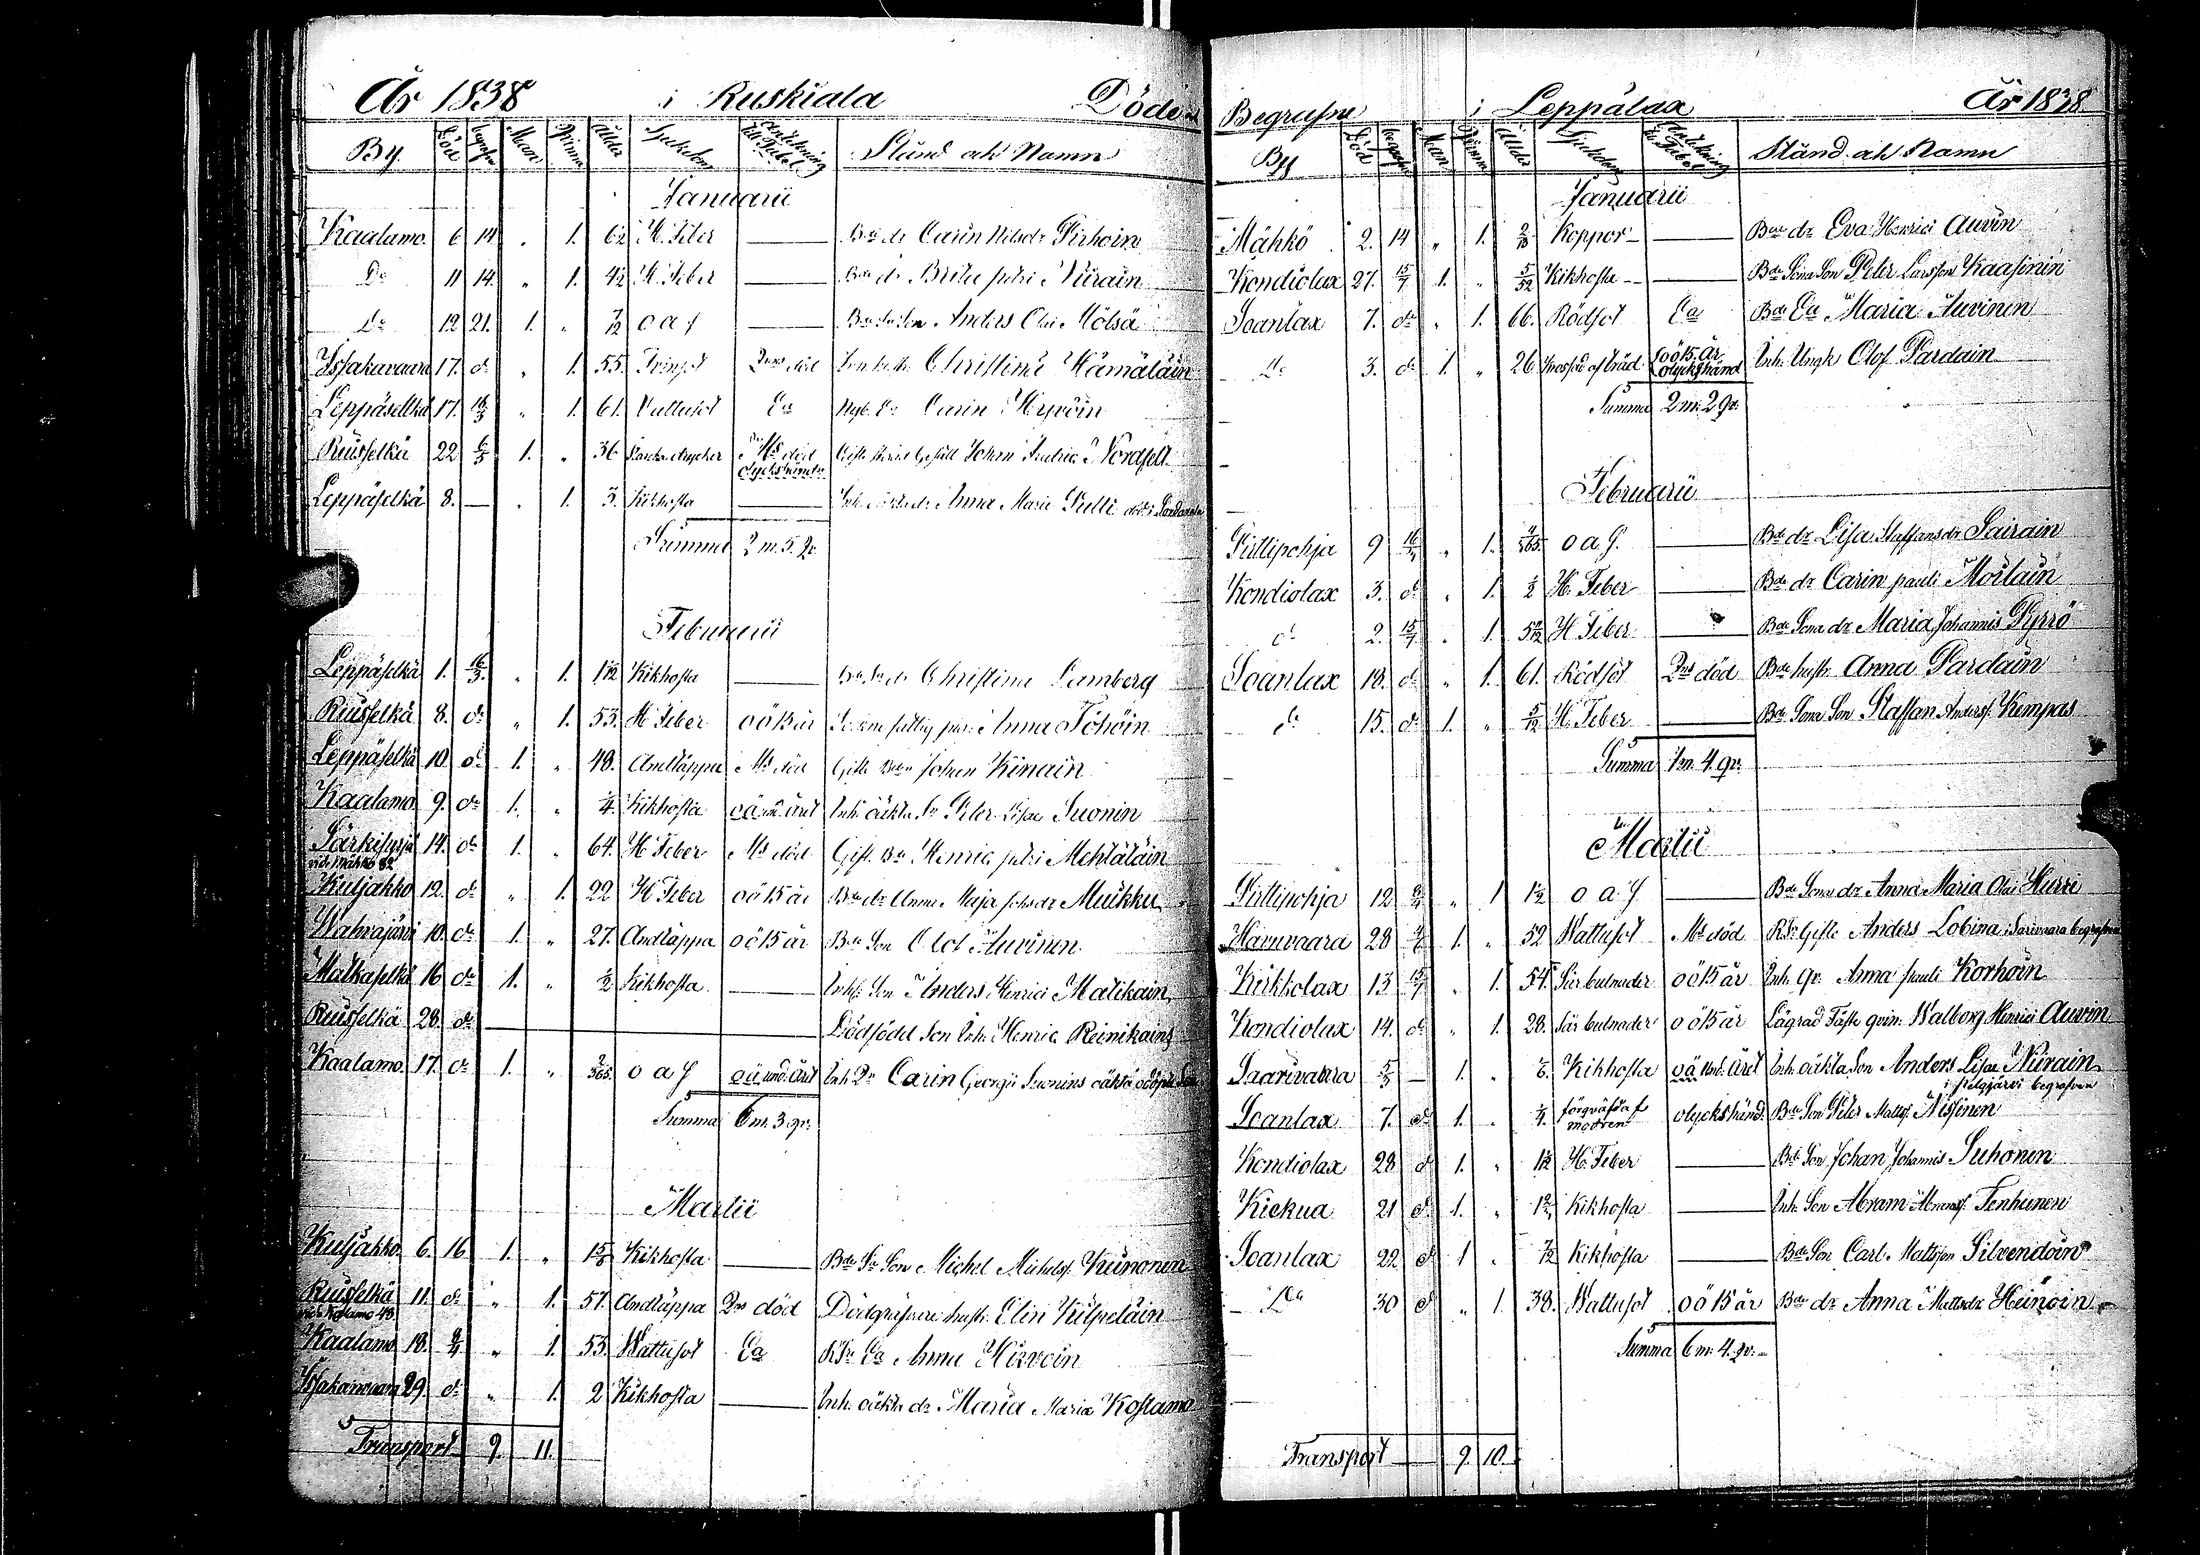 År 1838 i Ruskiala Döde
By. Död Begrafne Man Qvinna Ålder Sjukdom Anteckning till Tabel Stånd och Namn
Januarii
Kaalamo 6 14 „ 1. 6½ H. Feber — Bde dr Carin Nilsdr Pirhoin
Do 11 14. „ 1. 4½ H Feber — Bde dr Brita petri Niirain
Do 12 21. 1. „ 7/12 o a f — Bde Sr Son Anders Olai Mölsä
Issakavaara 17. do „ 1. 55. Qvns död hustr. Christina Hämäläin
Leppäselkä 17. 16/3 „ 1. 61. Vattusot Ea Carin Hyvöin
Ruusselkä 22 6/3 1. „ 36 Ms död olyckshänd. Gift Johan Fredric Nordfelt
Leppäselkä 8. — „ 1. 3. Kikhosta — Inh. dr Anna Maria Pulli död i Sordavala
Summa 2 m. 5. qv.
Februarii
Leppäselkä 1. 16/3. „ 1. 1½ Kikhosta — Bde Sr dr Christina Lamberg
Ruusselkä 8. do „ 1. 53. H Feber o ö 15 år Sockne fattig pig. Anna Töhöin
Leppäselkä 10. do 1. „ 48. Andtäppa Ms död Gift Bden Johan Kinain
Kaalamo 9. do 1. „ ¼ Kikhosta o ä und. Året Inh. oäkta Sn Peter Lisae Suonin
Särkisyrjä 14. do 1. „ 64. H Feber Ms död Gift. Bde Henric petri Mehtäläin
vid. Mähkö 82
Kuljakko 12. do „ 1. 22 H Feber o ö 15 år Bde dr Anna Maja Johsdr Muikku
Wahvajärvi 10. do 1. „ 27. Andtäppa o ö 15 år Bde Son Olof Auvinen
Matkaselkä 16 do 1. „ ½ Kikhosta — Inhs Son Anders Henrici Matikain
Ruusselkä 28. do — Dödfödd Son Inh. Henric Reinikains
Kaalamo 17. do 1. „ 2/365. o a f o ä und. Året Inh Dr Carin Georgii Suonins oäkta odöpta Son
Summa 6 m. 3. qv.
Martii
Kuljakko 6. 16 1. „ 1 5/6 Kikhosta — Bde Sr Son Michel Michelsf. Kuinonen
Ruusselkä 11. do „ 1. 57. Andtäppa Qvns död Dödgräfvare hustr. Elin Kiilpeläin
vid. Kalamo 48.
Kaalamo 18. 8/4 „ 1. 53. Wattusot Ea RSr Ea Anna Hirvoin
Issakanvaara 29. do „ 1. 2 Kikhosta — Inh. oäkta dr Maria Maria Kostamo
Transport 9. 11.
Begrafne i Leppälax År 1838.
By Död begrafne Man Qvinna Ålder Sjukdom Anteckning till Tabel Stånd och Namn
Januarii
Mähkö 2. 14 „ 1. Koppor — Bde dr Eva Henrici Auvin
Kondiolax 27. 15/4 1. „ 5/52 Kikhosta — Bde Sona Son Peter Larsson Kaasinin
Soanlax 7. do „ 1. 66. Rödsot Ea Bde Ea Maria Auvinen
Do 3. do 1. „ 26 Krossad af träd o ö 15 år olyckshänd Inh. Ungk Olof Pardain
Summa 2 m. 2 qv.
Februarii
Pirttipohja 9 16/4 „ 1. 4/365. o a f. — Bde dr Lisa Staffansdr Sairain
Kondiolax 3. do „ 1. ½ H. Feber — Bde dr Carin pauli Mörtäin
do 2. 15/4 „ 1. H Feber — Bde Sona dr Maria Johannis Pyrrö
Soanlax 18. do „ 1. 61. Rödsot Qvns död Bde hustr. Anna Pardain
do 15. do 1. „ 5/12 H. Feber — Bde Sona Son Staffan Andersf. Kempas
Summa 1 m. 4. qv.
Martii
Pirttipohja 12 8/4 „ 1 1½ o a f — Bde Sona dr Anna Maria Olai Hurri
Havuvaara 28 1. „ 52 Wattusot Ms död RSr Gifte Anders Lobina i Sarivaara begrafven
Kirkkolax 13 15/4 „ 1. 54. Sår bulnader o ö 15 år Inh. Qv. Anna pauli Korhoin
Kondiolax 14. do „ 1. 28. Sår bulnader o ö 15 år Lägrad Fäste qvin. Walborg Henrici Auvin
Saarivaara — 1. „ Kikhosta o ä und. Året Inh. oäkta Son Anders Lisae Niirain
i Pelgjärvi begrafven
Soanlax 7. do 1. „ ¼. förqväfd af modren olyckshänd. Bde Son Peter Mattsf. Nissinen
Kondiolax 28 do 1. „ 1½ H. Feber — Bde Son Johan Johannis Suhonen
Kiekua 21 do 1. „ Kikhosta — Inh. Son Abram Abramsf. Tenhunen
Soanlax 22 do 1 „ 7/12 Kikhosta — Bde Son Carl Mattsson Silvendoin
Do 30 do „ 1. 38. Wattusot o ö 15 år Bde dr Anna Mattsdr Heinoin
Summa 6 m. 4. qv.
Transport 9. 10.